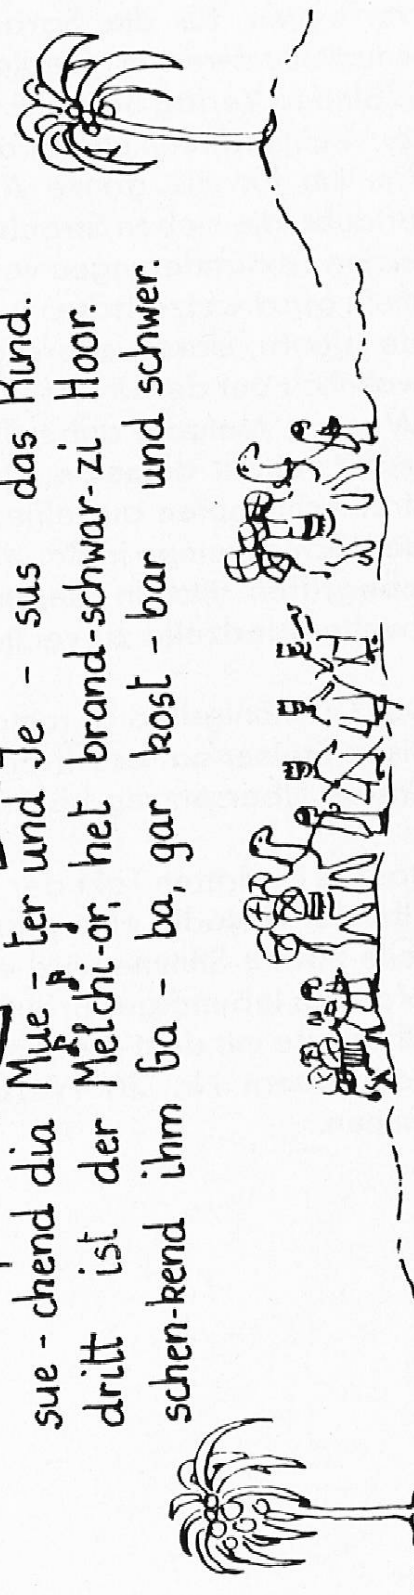 sue - chend dia Mue - ter und Je - sus das Kind.
dritt ist der Melchi-or, het brand-schwar-zi Hoor.
schen-kend ihm Ga - ba, gar kost - bar und schwer.